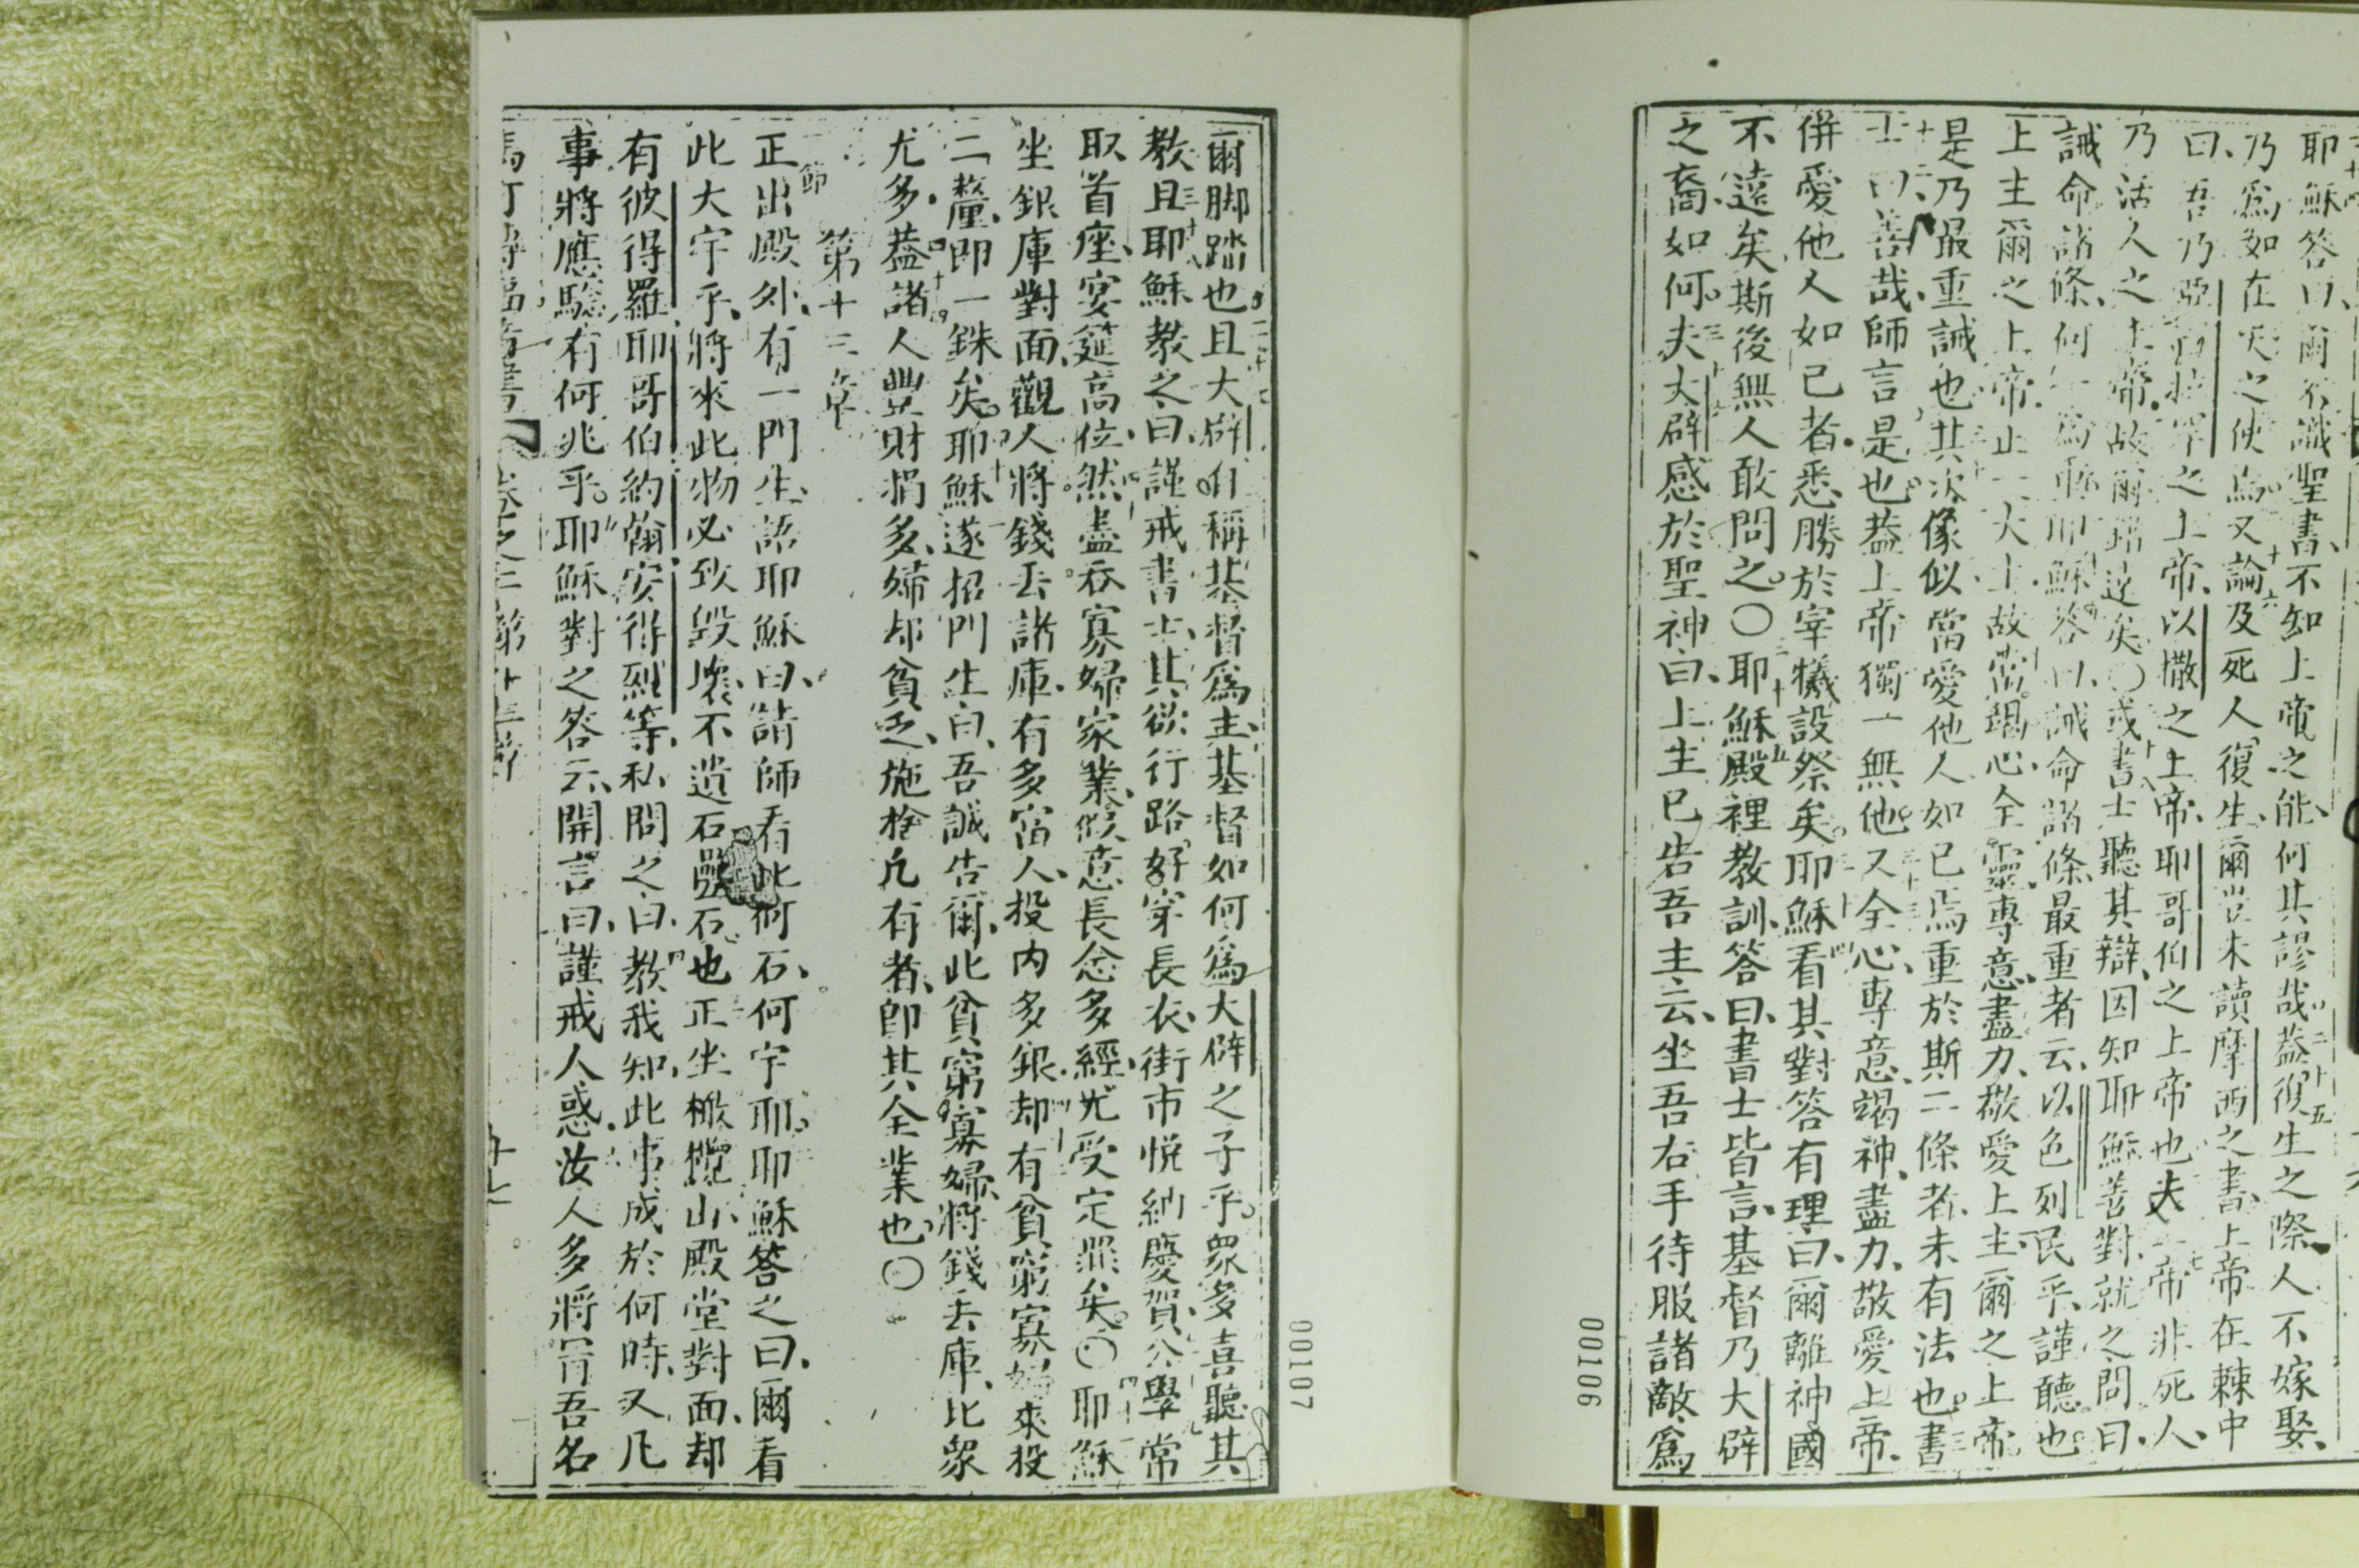 耶穌答曰、爾不識聖書、不知上帝之能、何其謬哉、蓋復生之際人不嫁娶、
乃為如在天之使焉、又論及死人復生、爾豈未讀摩西之書、上帝在棘中
曰、吾乃亞之上帝、以撒之上帝、耶哥伯之上帝也、夫上帝非死人、
乃活人之上帝、故爾錯逆矣○或書士聽其辯、因知耶穌善對、就之問曰、
誡命諸條、何一為重耶、耶穌答曰、誡命諸條、最重者云、以色列民乎、謹聽也
上主爾之上帝、止一大主、故當竭心、全靈、專意、盡力、敬愛上主爾之上帝
是乃最重誡也、其次像似、當愛他人如己焉、重於斯二條者、未有法也、書
士曰、善哉、師言是也、蓋上帝獨一無他、又全心、專意、竭神、盡力、敬愛上帝、
併愛他人如己者、悉勝於宰犧設祭矣、耶穌看其對答有理、曰、爾離神國
不遠矣、斯後無人敢問之、○耶穌殿裡教訓、答曰、書士皆言、基督乃大辟
之裔、如何、夫大辟感於聖神曰、上主已告吾主云、坐吾右手、待服諸敵、為
00106
00107
爾脚踏也、且大辟自稱基督為主、基督如何為大辟之子乎、眾多喜聽其
教、且耶穌教之曰、謹戒書士、其欲行路好穿長衣、街市悅納慶賀、公學常
取首座、宴筵高位、然盡吞寡婦家業、假意長念多經、尤受定罪矣、○耶穌
坐銀庫對面、觀人將錢丟諸庫、有多富人、投內多銀、却有貧窮寡婦來投
二釐、即一銖矣、耶穌遂招門生曰、吾誠告爾、此貧窮寡婦、將錢丟庫、比眾
尤多、蓋諸人豐財捐多、婦却貧乏、施捨凡有者、即其全業也、○
第十三章
一節
正出殿外、有一門生、語耶穌曰、請師看此何石、何宇耶、耶穌答之曰、爾看
此大宇乎、將來此物必致毀壞、不遺石壘石也、正坐橄欖山、殿堂對面、却
有彼得羅、耶哥伯、約翰、安得烈等、私問之曰、教我知、此事成於何時、又凡
事將應驗、有何兆乎、耶穌對之答云、開言曰、謹戒人惑汝、人多將冒吾名
馬可傳福音書 卷之二第十三章